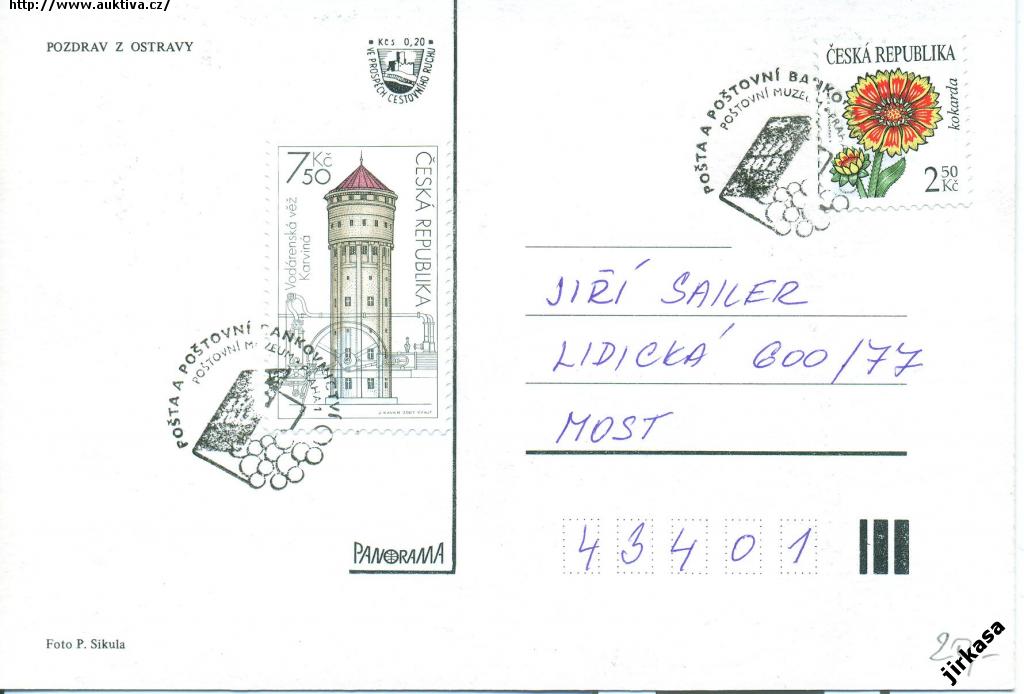 http://www.auktiva.cz/
POZDRAV Z OSTRAVY
Kčs 0,20
VE PROSPĚCH CESTOVNÍHO RUCHU
ČESKÁ REPUBLIKA
kokarda
2 50 Kč
POŠTA A POŠTOVNÍ BANKO
POŠTOVNÍ MUZEUM PRAHA
7 50 Kč
ČESKÁ REPUBLIKA
Vodárenská věž
Karviná
J. KAVAN 2007
POŠTA A POŠTOVNÍ BANKOVNICTVÍ
POŠTOVNÍ MUZEUM PRAHA 1
JIŘÍ SAILER
LIDICKÁ 600/77
MOST
43401
PANORAMA
Foto P. Sikula
jirkasa